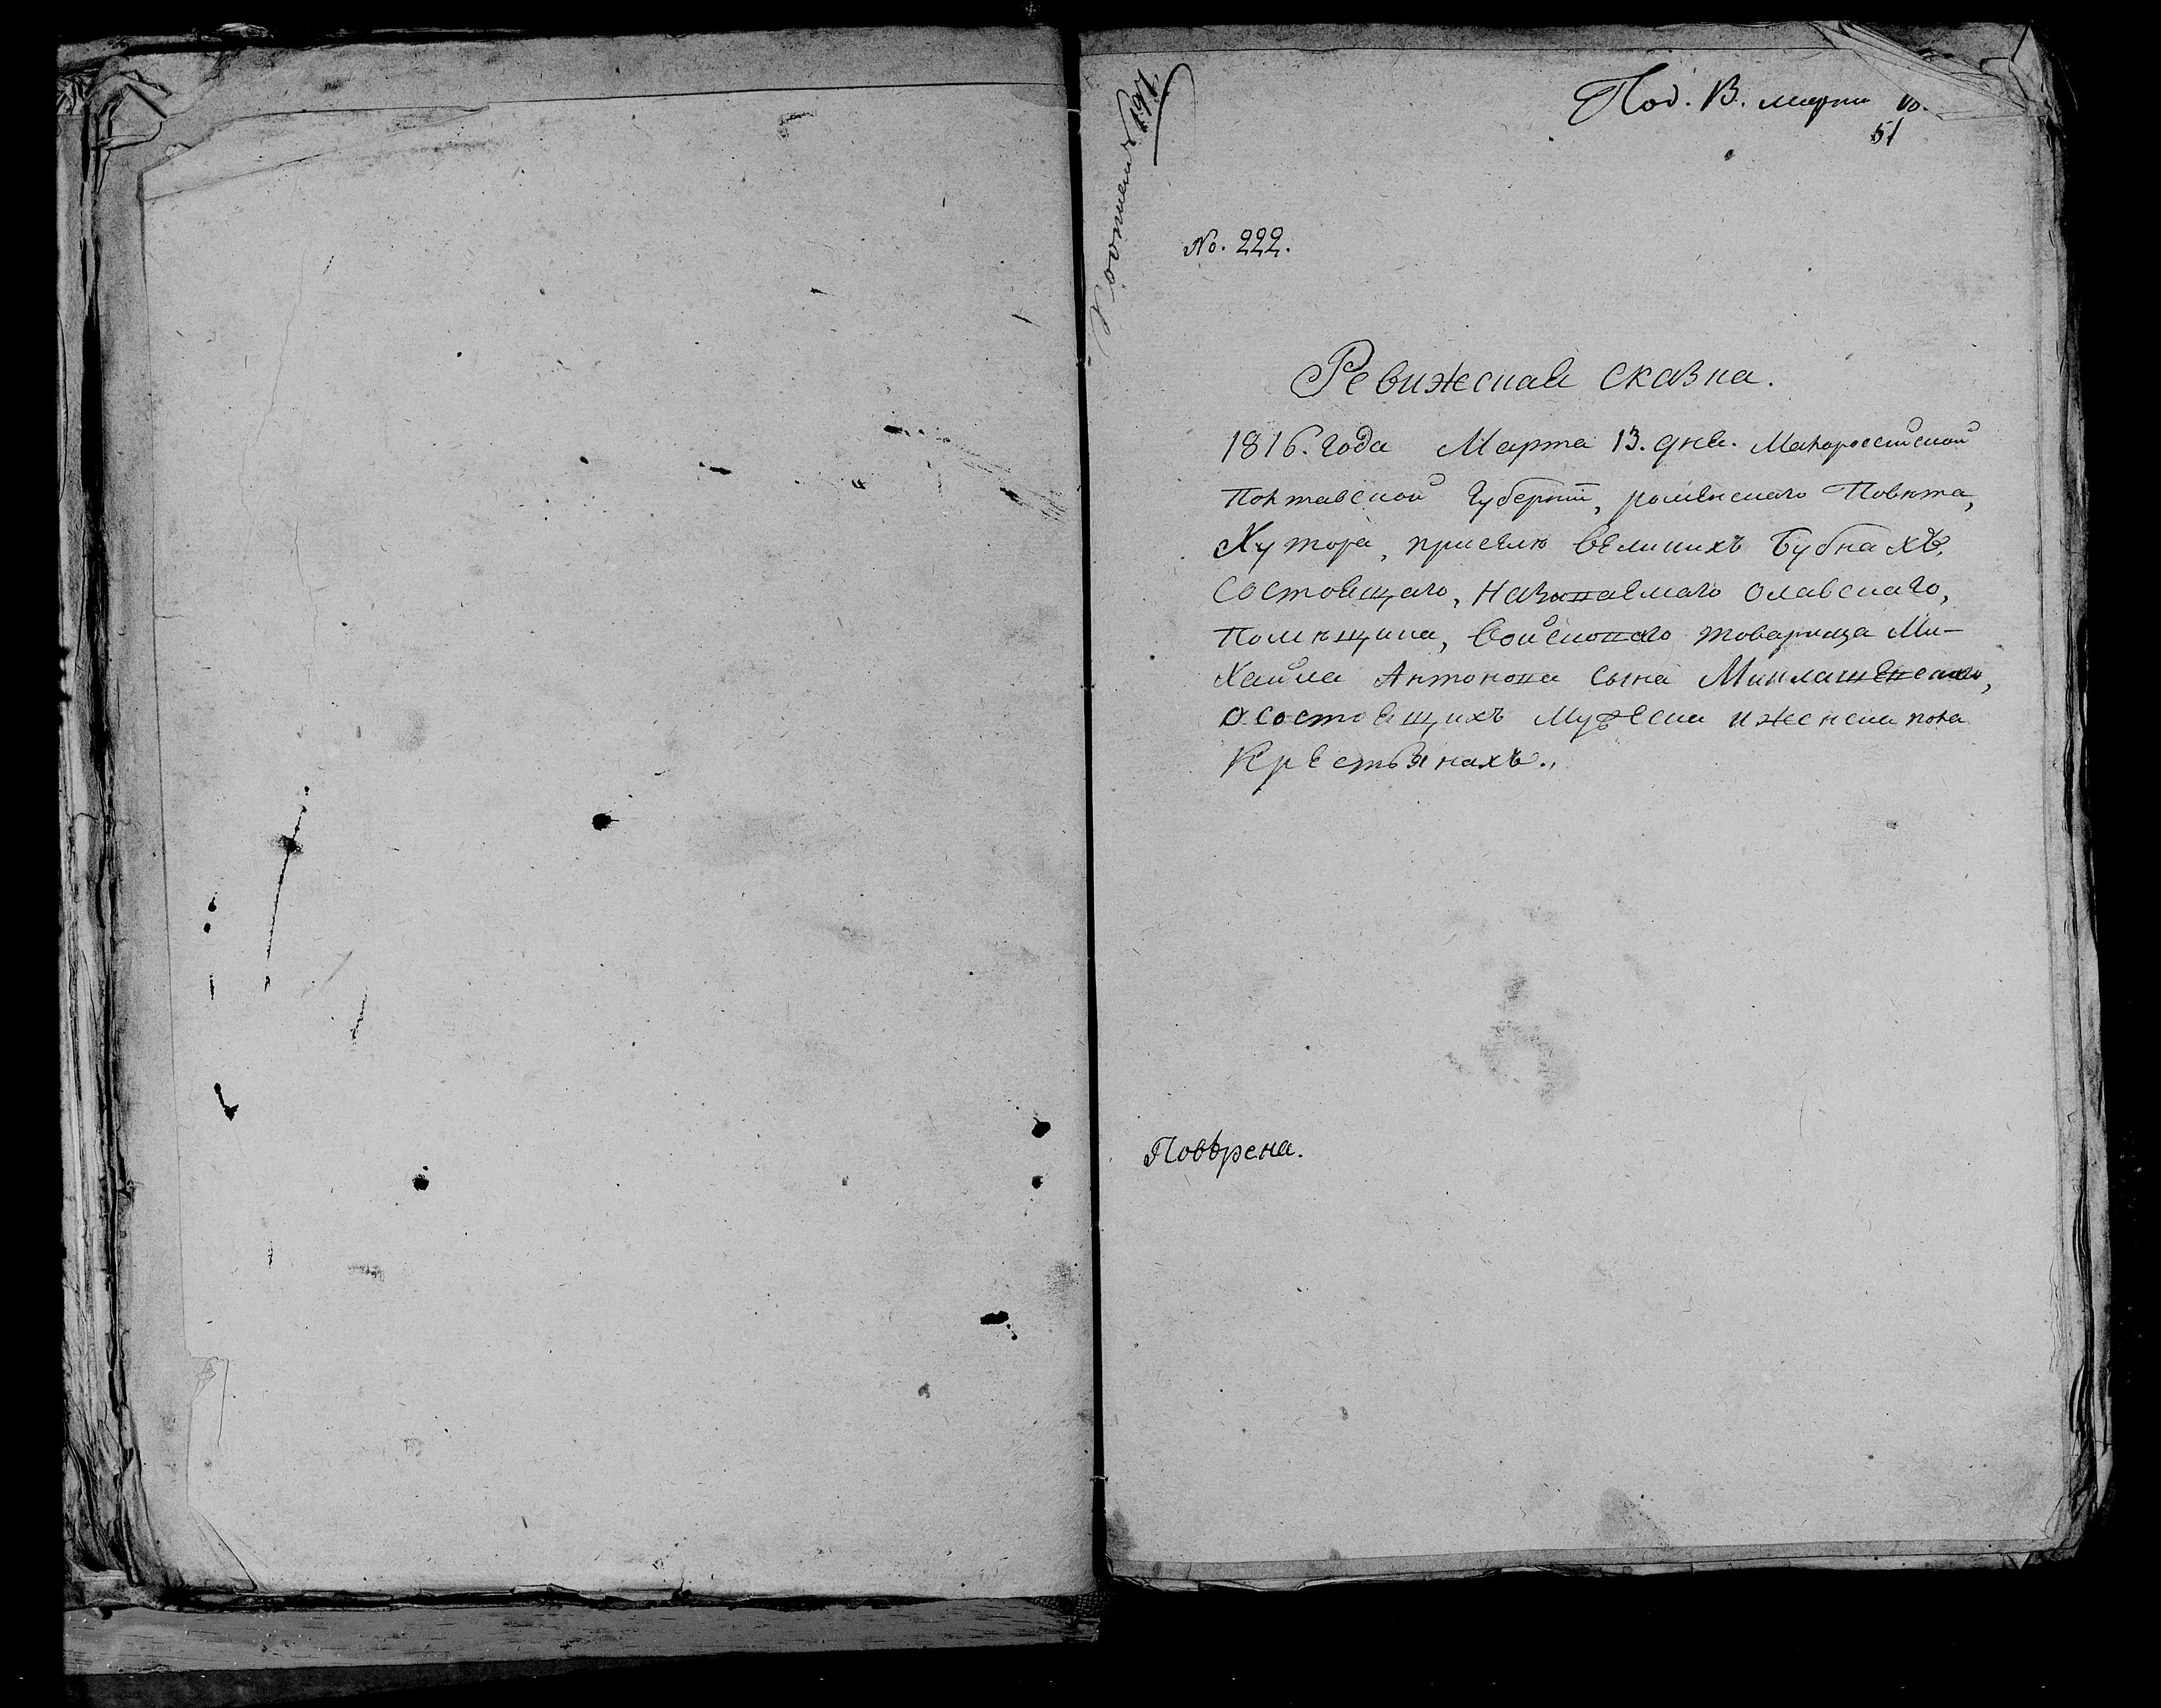 Под. 13. марта
51
197.
No. 222.
Ревижская сказка.
1816. года Марта 13. дня. Малороссійской
Полтавской Губерніи, роменскаго Повѣта,
Хутора, приселѣ великихъ Бубнахъ,
состоящаго, называемаго
Помѣщика, войсковаго товарища Ми-
хайла Антонова сына Миклашевскаго,
о состоящихъ мужеска и женска пола
Крестьянахъ.,
Повѣрена.